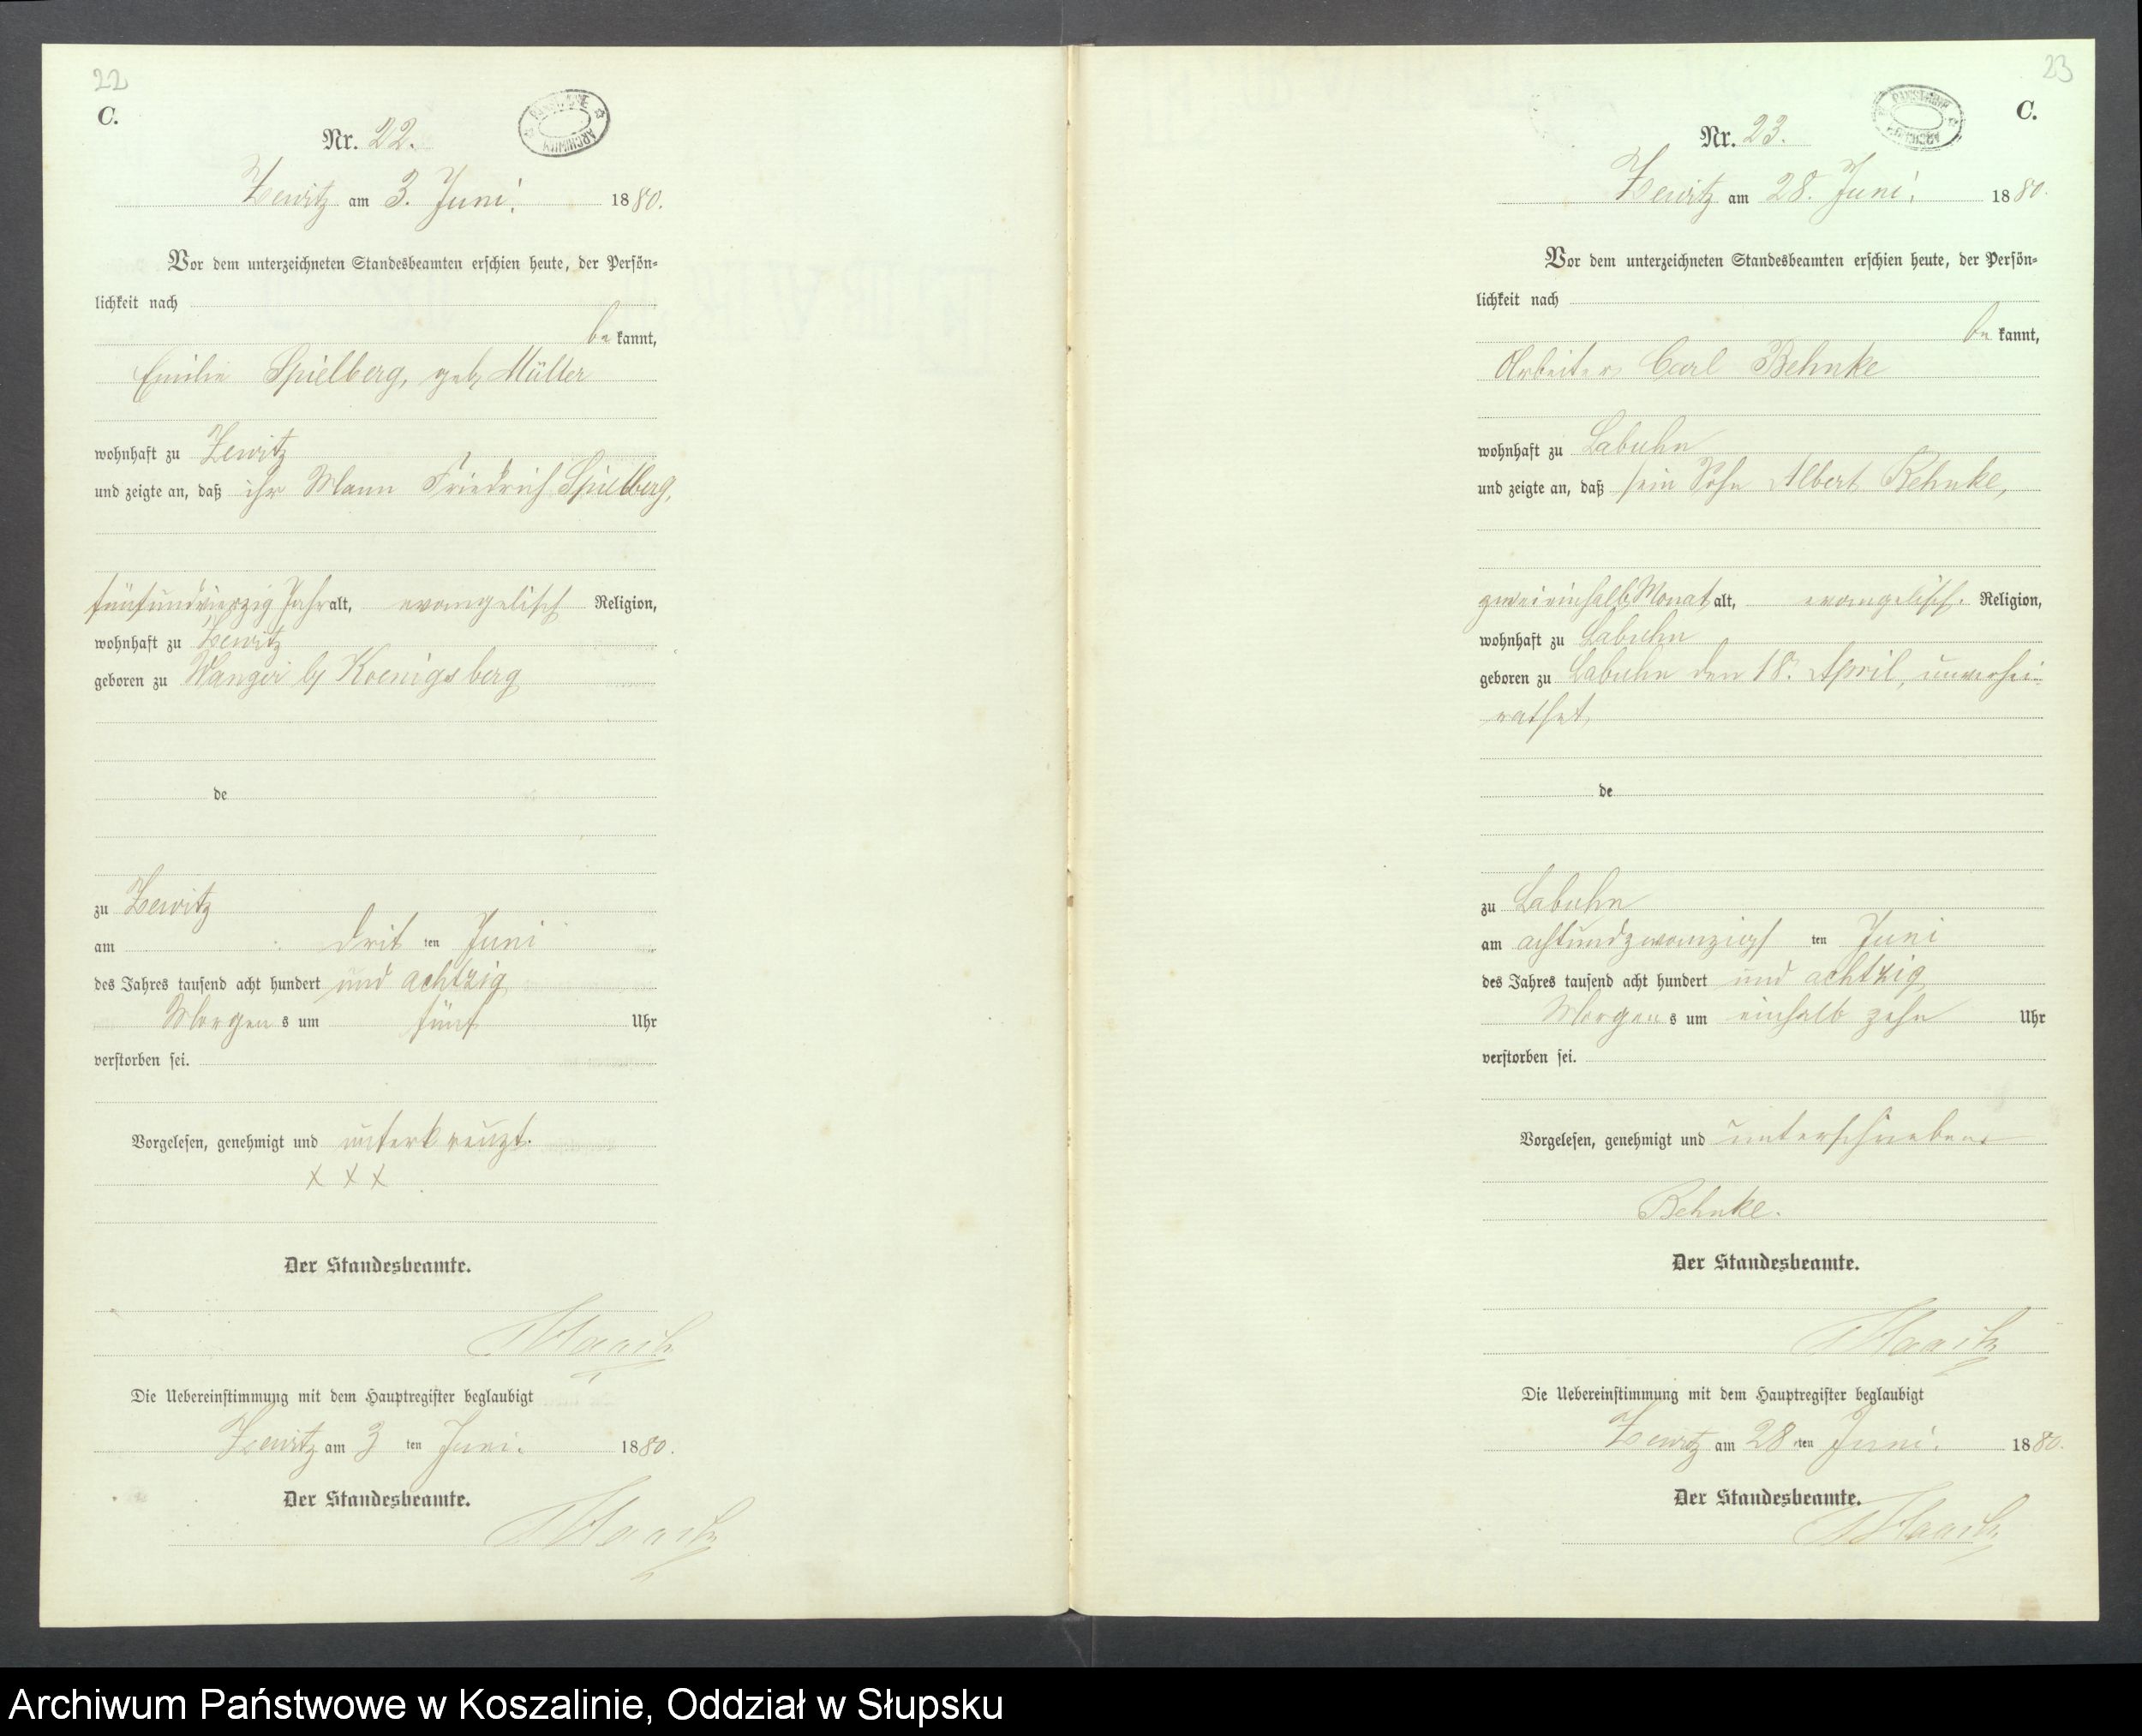 22
C.
Nr. 22.
Zewitz am 3. Juni. 1880.
Vor dem unterzeichneten Standesbeamten erschien heute, der Persön-
lichkeit nach
be kannt,
Emilie Spielberg, geb. Müller
wohnhaft zu Zewitz
und zeigte an, daß ihr Mann Friedrich Spielberg,
fünfundvierzig Jahr alt, evangelisch Religion,
wohnhaft zu Zewitz
geboren zu b/ Koenigsberg
de
zu Zewitz
am drit ten Juni
des Jahres tausend acht hundert und achtzig
Morgen s um fünf Uhr
verstorben sei.
Vorgelesen, genehmigt und unterkreuzt.
x x x
Der Standesbeamte.
Die Uebereinstimmung mit dem Hauptregister beglaubigt
Zewitz am 3 ten Juni. 1880.
Der Standesbeamte.
23
C.
Nr. 23.
Zewitz am 28. Juni. 1880.
Vor dem unterzeichneten Standesbeamten erschien heute, der Persön-
lichkeit nach
be kannt,
Arbeiter Carl Behnke
wohnhaft zu Labuhn
und zeigte an, daß sein Sohn Albert Behnke,
zweieinhalb Monat alt, evangelisch. Religion,
wohnhaft zu Labuhn
geboren zu Labuhn den 18. April, unverhei-
rathet,
de
zu Labuhn
am achtundzwanzigst ten Juni
des Jahres tausend acht hundert und achtzig
Morgens s um einhalb zehn Uhr
verstorben sei.
Vorgelesen, genehmigt und unterschrieben.
Behnke.
Der Standesbeamte.
Die Uebereinstimmung mit dem Hauptregister beglaubigt
Zewitz am 28 ten Juni. 1880.
Der Standesbeamte.
Archiwum Państwowe w Koszalinie, Oddział w Słupsku